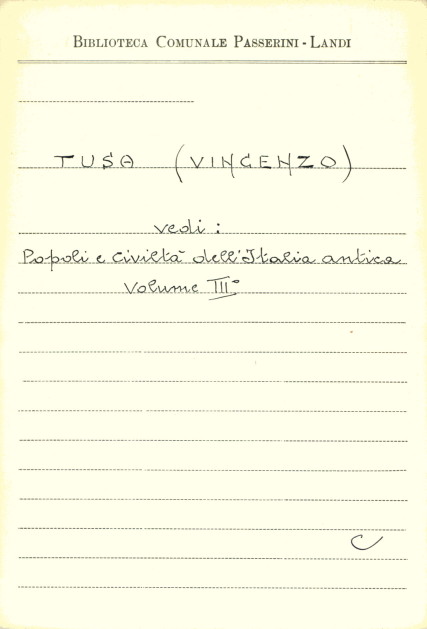 BIBLIOTECA COMUNALE PASSERINI - LANDI
TUSA (VINCENZO)
vedi :
Popoli e civiltà dell'Italia antica
Volume III°
C